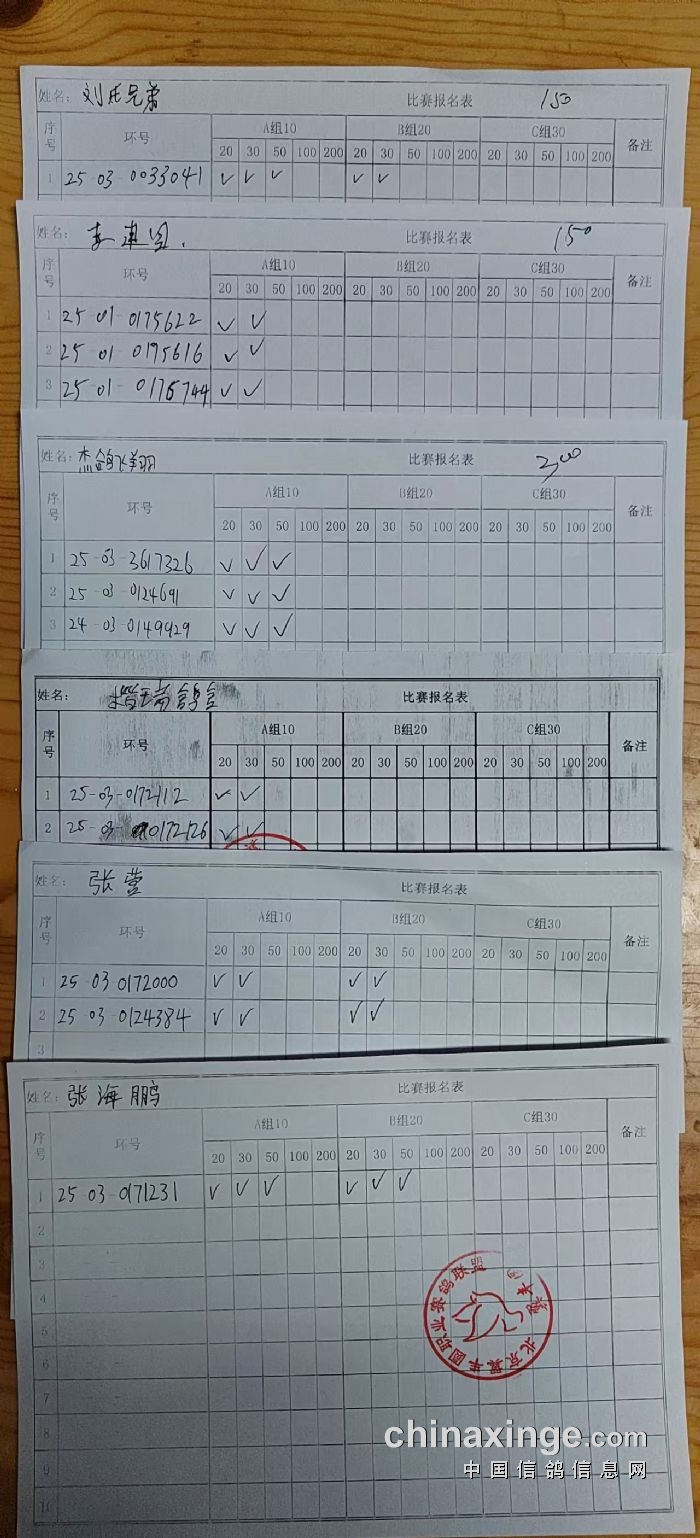 姓名: 刘氏兄弟 比赛报名表 150
序号 环号 A组10 B组20 C组30 备注
20 30 50 100 200 20 30 50 100 200 20 30 50 100 200
1 25-03-0033041 ✓ ✓ ✓ ✓ ✓
姓名: 比赛报名表 150
序号 环号 A组10 B组20 C组30 备注
20 30 50 100 200 20 30 50 100 200 20 30 50 100 200
1 25-01-0175622 ✓ ✓
2 25-01-0175616 ✓ ✓
3 25-01-0175744 ✓ ✓
姓名: 杰鸽飞翔 比赛报名表 300
序号 环号 A组10 B组20 C组30 备注
20 30 50 100 200 20 30 50 100 200 20 30 50 100 200
1 25-03-3617326 ✓ ✓ ✓
2 25-03-0124691 ✓ ✓ ✓
3 24-03-0149929 ✓ ✓ ✓
姓名: 鸽舍 比赛报名表
序号 环号 A组10 B组20 C组30 备注
20 30 50 100 200 20 30 50 100 200 20 30 50 100 200
1 25-03-0172112 ✓ ✓
2 25-03-0172126 ✓ ✓
姓名: 张莹 比赛报名表
序号 环号 A组10 B组20 C组30 备注
20 30 50 100 200 20 30 50 100 200 20 30 50 100 200
1 25-03-0172000 ✓ ✓ ✓ ✓
2 25-03-0124384 ✓ ✓ ✓ ✓
3
姓名: 张海鹏 比赛报名表
序号 环号 A组10 B组20 C组30 备注
20 30 50 100 200 20 30 50 100 200 20 30 50 100 200
1 25-03-0171231 ✓ ✓ ✓ ✓ ✓ ✓
2
3
4
5
6
7
8
9
10
北京翼丰圆职业赛鸽联盟
chinaxinge.com
中国信鸽信息网